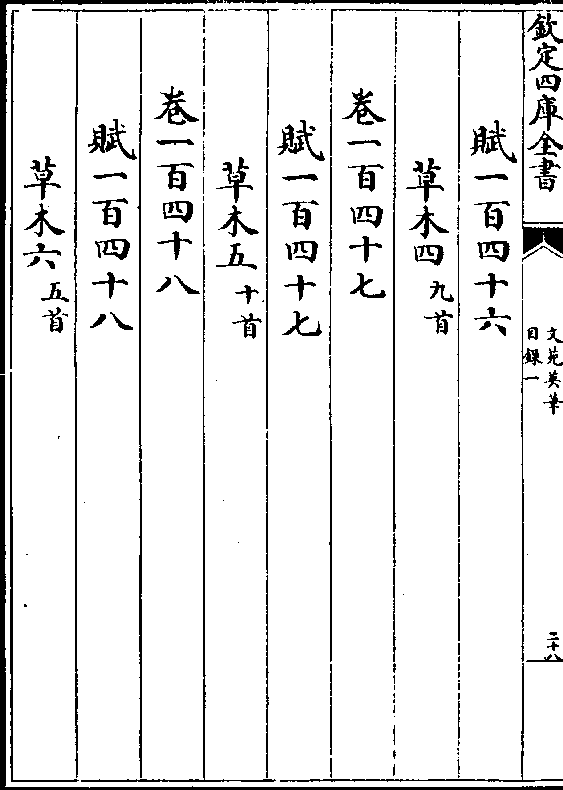 欽定四庫全書
文苑英華
目錄一
二十八
賦一百四十六
草木四九首
卷一百四十七
賦一百四十七
草木五十首
卷一百四十八
賦一百四十八
草木六五首